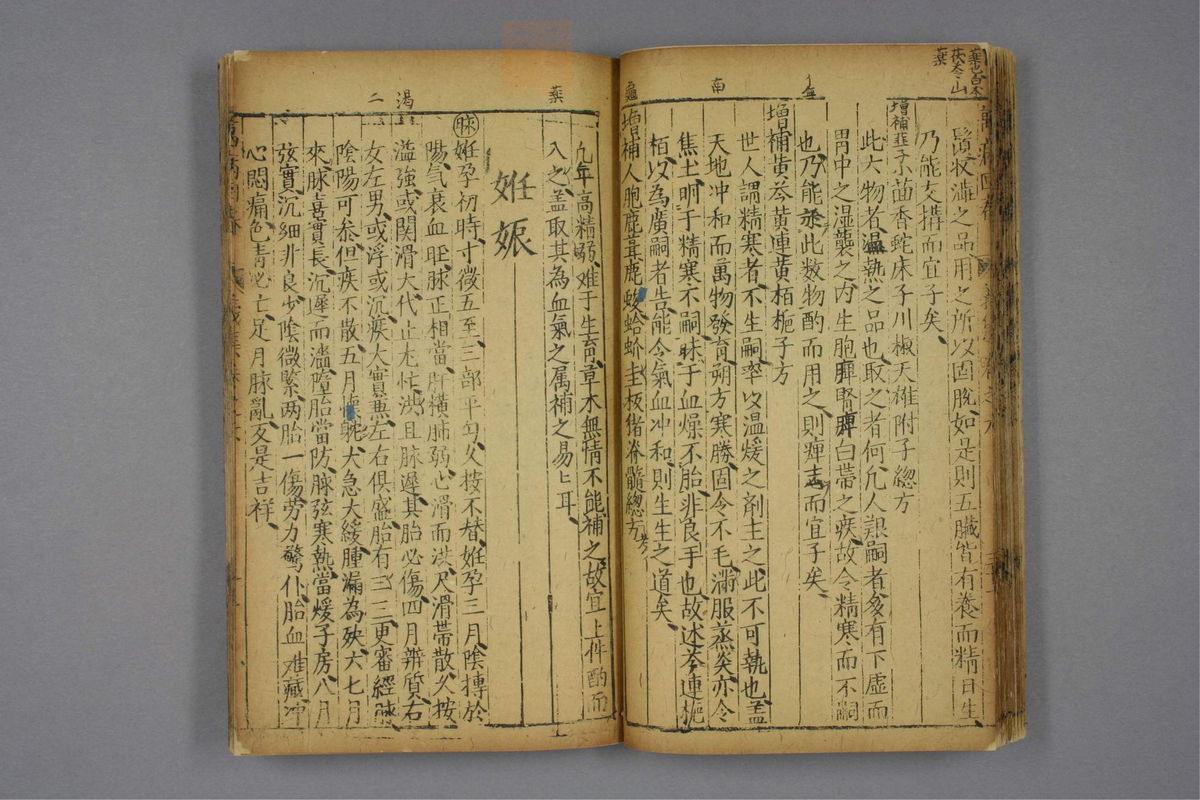 藥
南
無
龜
乃能交搆而宜子矣
增補韭子茴香蛇床子川椒天雄附子總方
此大物者溫熱之品也取之者何凡人艱嗣者多有下虛而
胃中之濕襲之内生胞痺腎痺白帶之疾故令精寒而不嗣
也乃能叅此數物酌而用之則痺去而宜子矣
增補黃芩黃連黃栢梔子方
世人謂精寒者不生嗣率以溫煖之劑主之此不可執也蓋
天地冲和而萬物發育朔方寒勝固令不毛㴠服蒸炎亦令
焦土明于精寒不嗣昧于血燥不胎非良手也故述芩連梔
栢以為廣嗣者告能令氣血冲和則生生之道矣
增補人胞鹿茸鹿峻蛤蚧圭板猪脊髓總方
藥
渴
二
凡年高精弱难于生育草木無情不能補之故宜上件酌而
入之蓋取其為血氣之属補之易易耳
姙娠
脉姙孕初時寸微五至三部平匀久按不替姙孕三月陰摶於
陽氣衰血旺脉正相當肝橫肺弱心滑而洪尺滑帶散久按
溢強或関滑大代止尤忙洪且脉遲其胎必傷四月辨質右
女左男或浮或沉疾大實無左右俱盛胎有三三更審經脉
陰陽可叅但疾不散五月懷躭犬急大緩腫漏為殃六七月
來脉喜實長沉遲而濇墮胎當防脉弦寒熱當煖子房八月
弦實沉細非良少陰微緊两胎一傷劳力驚仆胎血难藏冲
心悶痛色青必亡足月脉亂反是吉祥